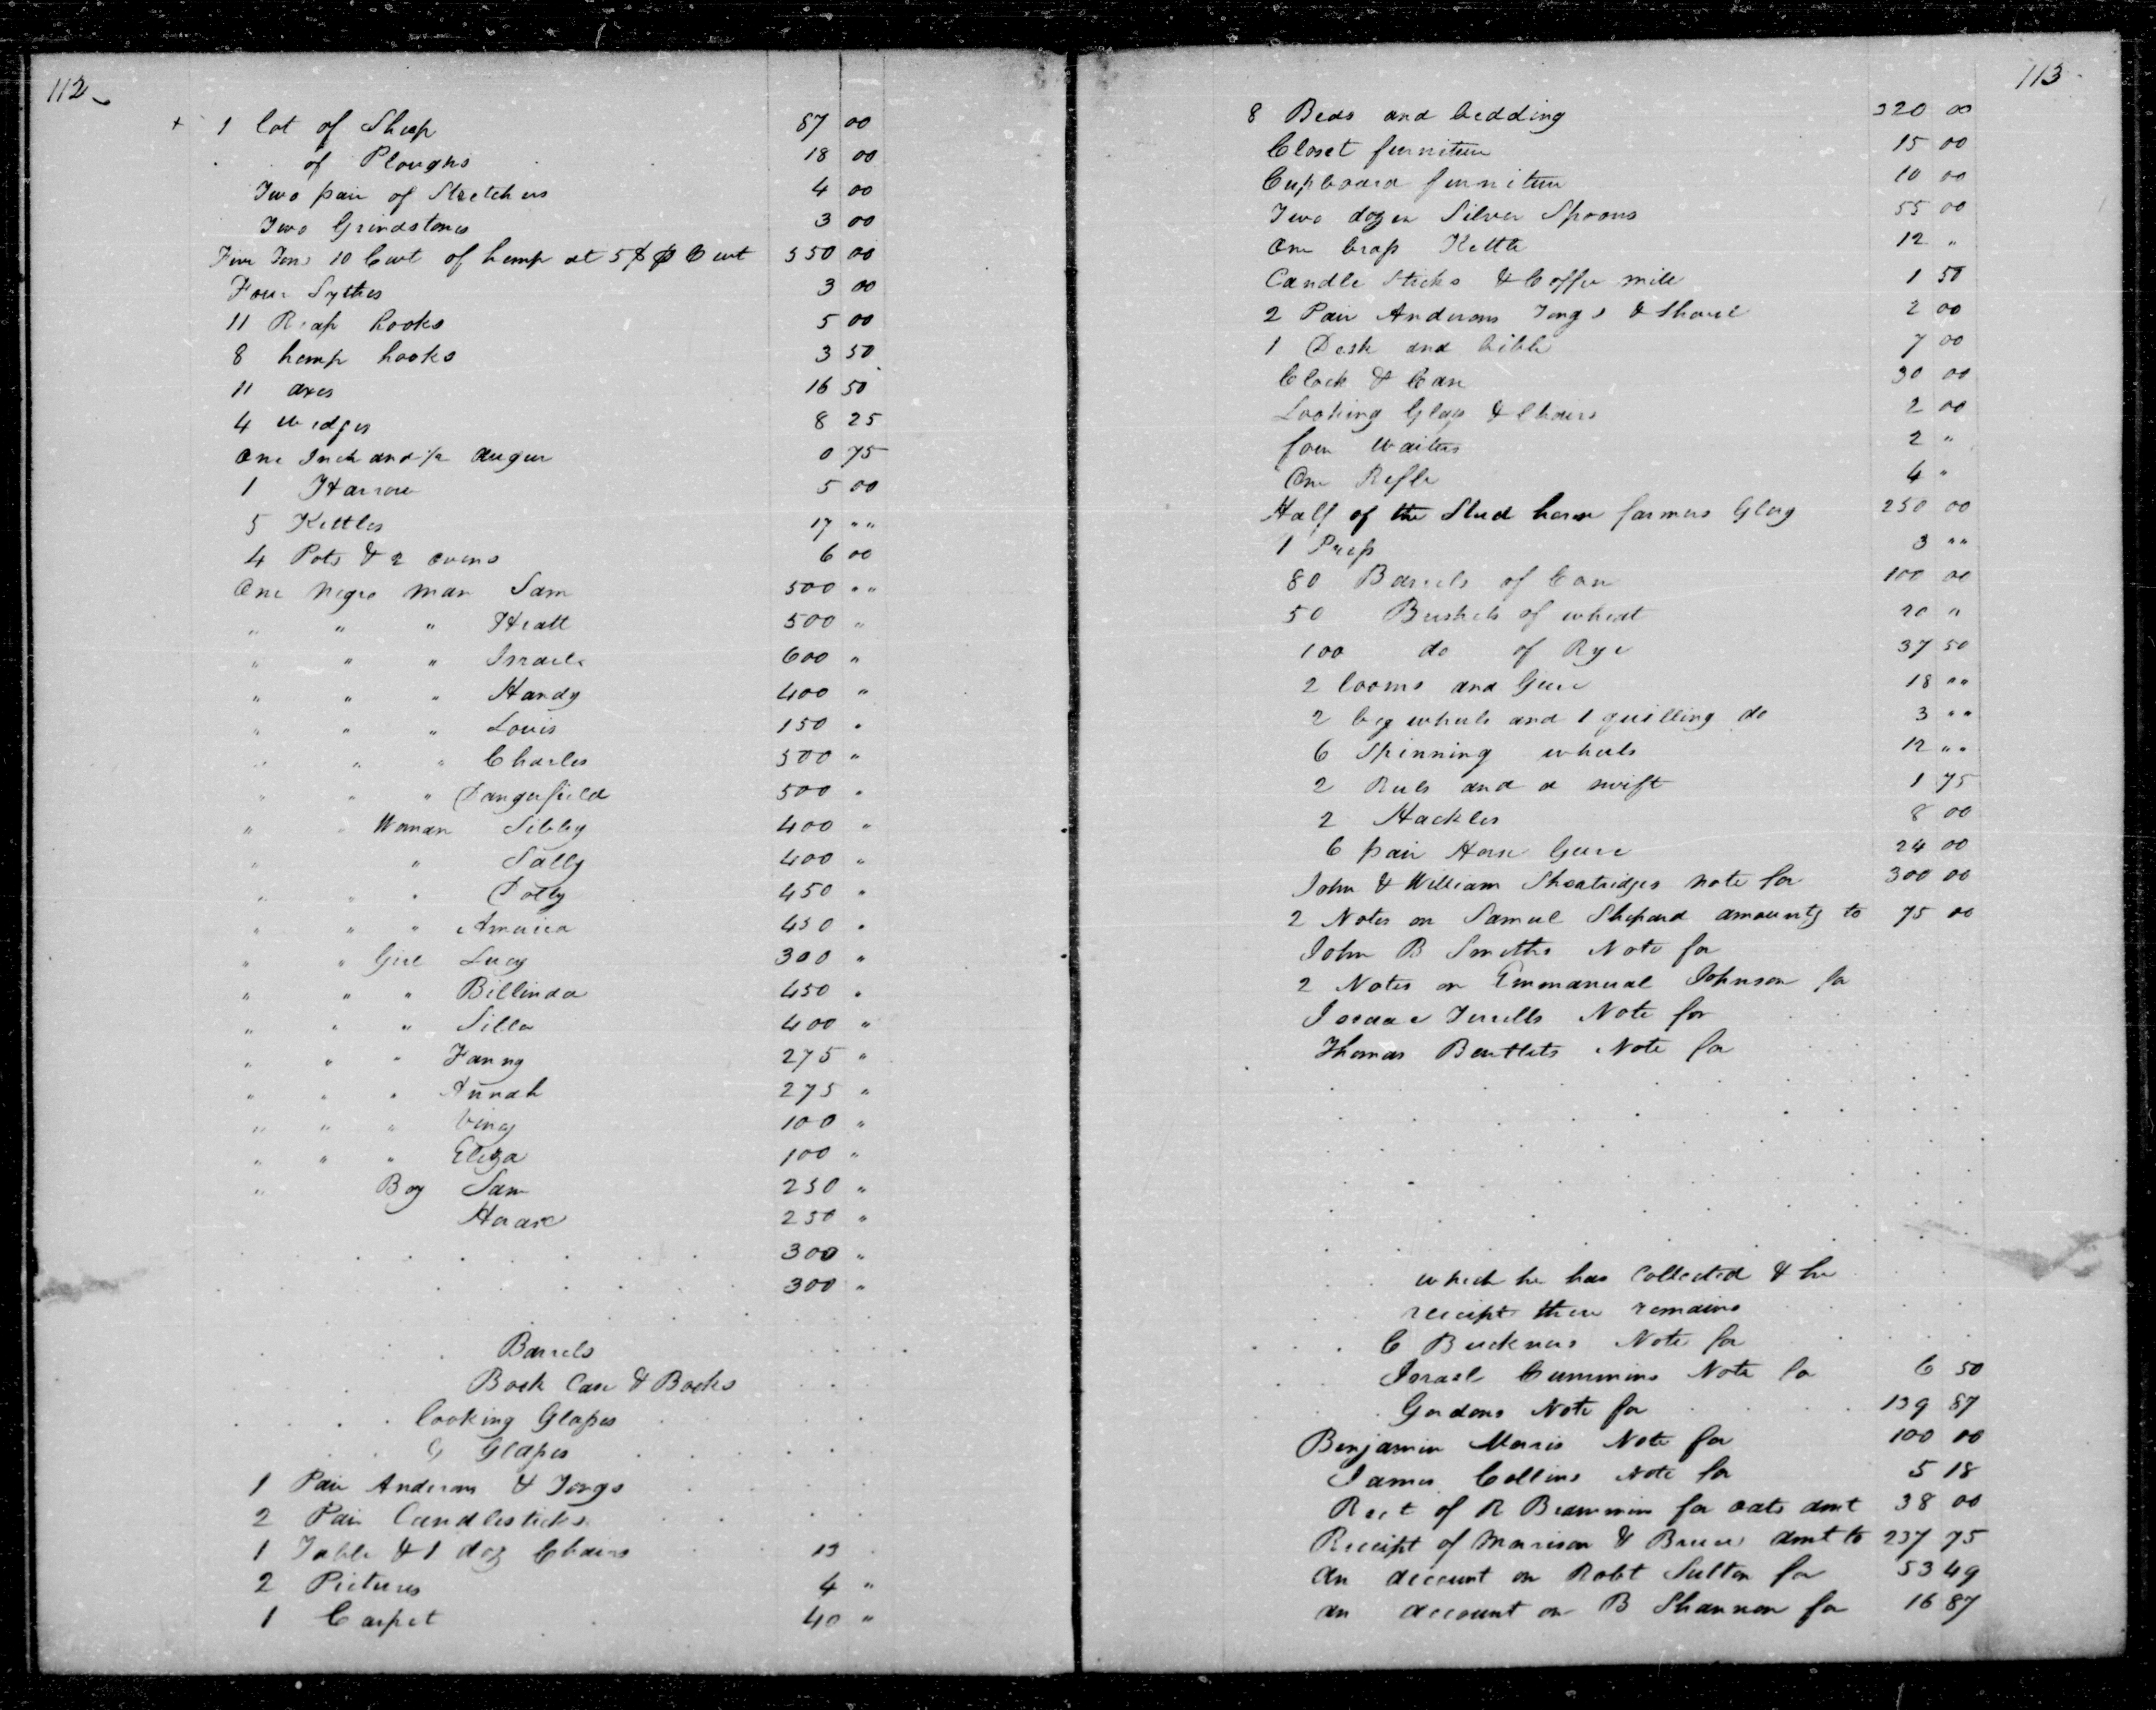 112
+ 1 lot of Sheep 87 00
. . of Ploughs 18 00
Two pair of Stretchers 4 00
Two Grindstones 3 00
Five Tons 10 Cwt of hemp at 5$ p Cwt 550 00
Four Sythes 3 00
11 Reap hooks 5 00
8 hemp hooks 3 50
11 axes 16 50
4 wedges 8 25
One Inch and ½ augur 0 75
1 Harrow 5 00
5 Kettles 17 " "
4 Pots & 2 ovens 6 00
One Negro man Sam 500 " "
" " " Hiatt 500 "
" " " Israel 600 "
" " " Handy 400 "
" " " Louis 150 "
" " " Charles 500 "
" " " Dangerfield 500 "
" " Woman Sibby 400 "
" " Sally 400 "
" " " Dolly 450 "
" " " America 450 "
" " Girl Lucy 300 "
" " " Billinda 450 "
" " " Silla 400 "
" " " Fanny 275 "
" " " 275 "
" " " Viny 100 "
" " " Eliza 100 "
" Boy Sam 250 "
250 "
300 "
300 "
Barrels
Book Case & Books
looking Glasses
Glasses
1 Pair Anderons & Tongs
2 Pair Candlesticks
1 Table & 1 doz Chairs 13
2 Pictures 4 "
1 Carpet 40 "
113
8 Beds and bedding 320 00
Closet furniture 15 00
Cupboard furniture 10 00
Two dozen Silver Spoons 55 00
One brass Kettle 12 "
Candle Sticks & Coffee mill 1 50
2 Pair Anderons Tongs & Shovel 2 00
1 Desk and bible 7 00
Clock & Case 30 00
Looking Glass & Chairs 2 00
four Waiters 2 "
One Rifle 4 "
Half of the Stud horse farmers Glory 250 00
1 Press 3 " "
80 Barrels of Corn 100 00
50 Bushels of wheat 20 "
100 do of Rye 37 50
2 looms and Geer 18 " "
2 big wheels and 1 quilling do 3 " "
6 Spinning wheels 12 " "
2 Reels and a swift 1 75
2 Hackles 8 00
6 pair Horse Geere 24 00
John & William Shoatridges note for 300 00
2 Notes on Samuel Shepard amountg to 75 00
John B Smiths Note for
2 Notes on Emmanueal Johnson for
Isaac Terrells Note for
Thomas Note for
which he has Collected & he
receipt there remains
C Buckners Note for
Israel Cummins Note for 6 50
Gordons Note for 139 87
Benjamin Morris Note for 100 00
James Collins Note for 5 18
Rect of R for oats amt 38 00
Receipt of Morrison & Bruce amt to 237 75
An account on Robt Sutton for 53 49
an account on B Shannon for 16 87